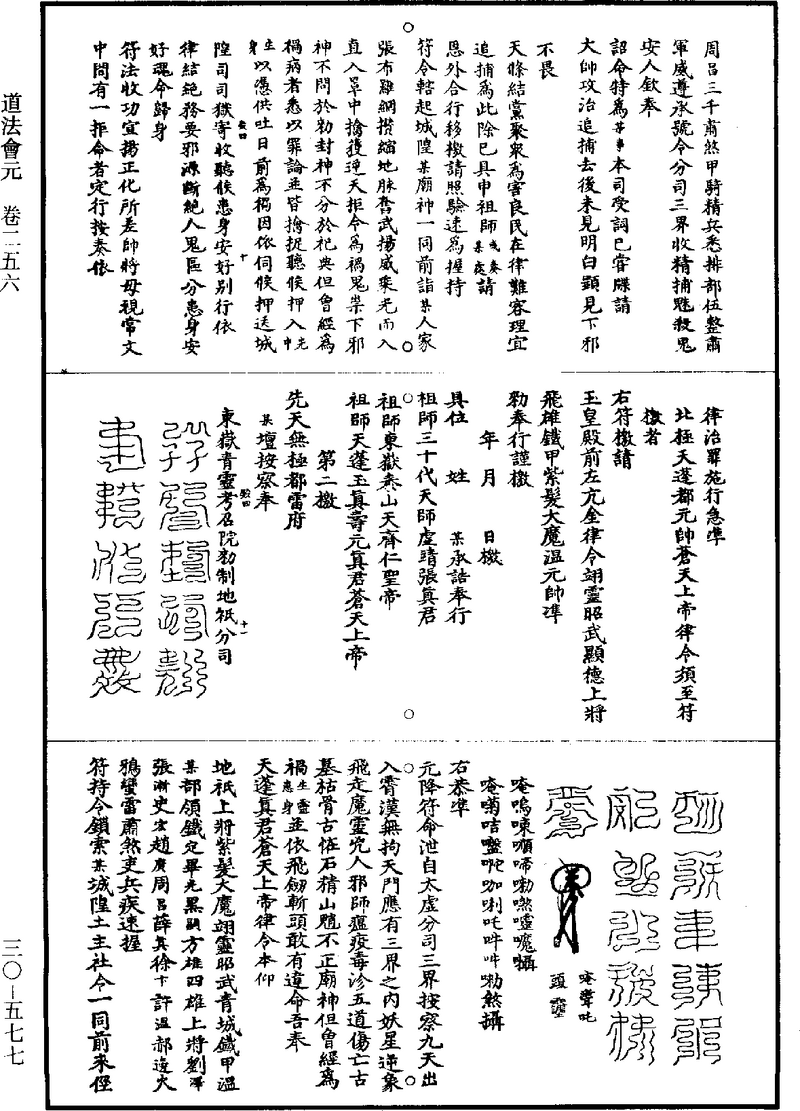 道法會元　卷二五六
三〇—五七七
周呂三千肅煞甲騎精兵悉排部伍整肅
軍威遵承號令分司三界收精捕魅殺鬼
安人欽奉
詔命特為某事本司受詞已嘗牒請
大帥攻治追捕去後未見明白顯見下邪
不畏
天條結黨聚眾為害良民在律難容理宜
追捕為此除已具申祖師或奏某處請
恩外合行移檄請照驗速為握持
符令轄起城隍某廟神一同前詣某人家
張布羅網攢縮地脉奮武揚威乘光而入
直入單中擒獲逆天拒令為禍鬼祟下邪
神不問於勑封神不分於祀典但曾經為
禍病者悉以罪論並皆擒捉聽候押入先中
生身以憑供吐日前為禍因依伺候押送城
隍司司獄寄收聽候患身安好別行依
律結絕務要邪源斷絕人鬼區分患身安
好魂命歸身
符法收功宜揚正化所差帥將毋視常文
中間有一拒命者定行按奏依
律治罪施行急準
北極天蓬都元帥蒼天上帝律令須至符
檄者
右符檄請
玉皇殿前左亢金律令翊靈昭武顯德上將
飛雄鐵甲紫髮大魔溫元帥準
勑奉行謹檄
年　月　日檄
具位　姓　某承誥奉行
祖師三十代天師虛靖張真君
祖師東嶽泰山天齊仁聖帝
祖師天蓬玉真壽元真君蒼天上帝
第二檄
先天無極都雷府
某壇按察奉
東嶽青靈考召院勑制地祇分司
唵嗚㖦㘈啼嘞煞嚧魔攝
唵㗎咭囕㖿咖唎吒吽吽嘞煞攝
右恭準
元降符命泄自太虛分司三界按察九天出
入霄漢無拘天門應有三界之內妖星逆象
飛走魔靈究人邪師瘟疫毒沴五道傷亡古
墓枯骨古怪石精山魈不正廟神但曾經為
禍生靈患身並依飛劒斬頭敢有違命吾奉
天蓬真君蒼天上帝律令本仰
地祇上將紫髮大魔翊靈昭武青城鐵甲溫
某部領鐵定畢光黑嗣方雄四雄上將劉澤
張淅史宏趙廣周呂薛其徐卞許溫郝邊火
鴉蠻雷肅煞吏兵疾速握
符持令鎖索某城隍土主社令一同前來徑